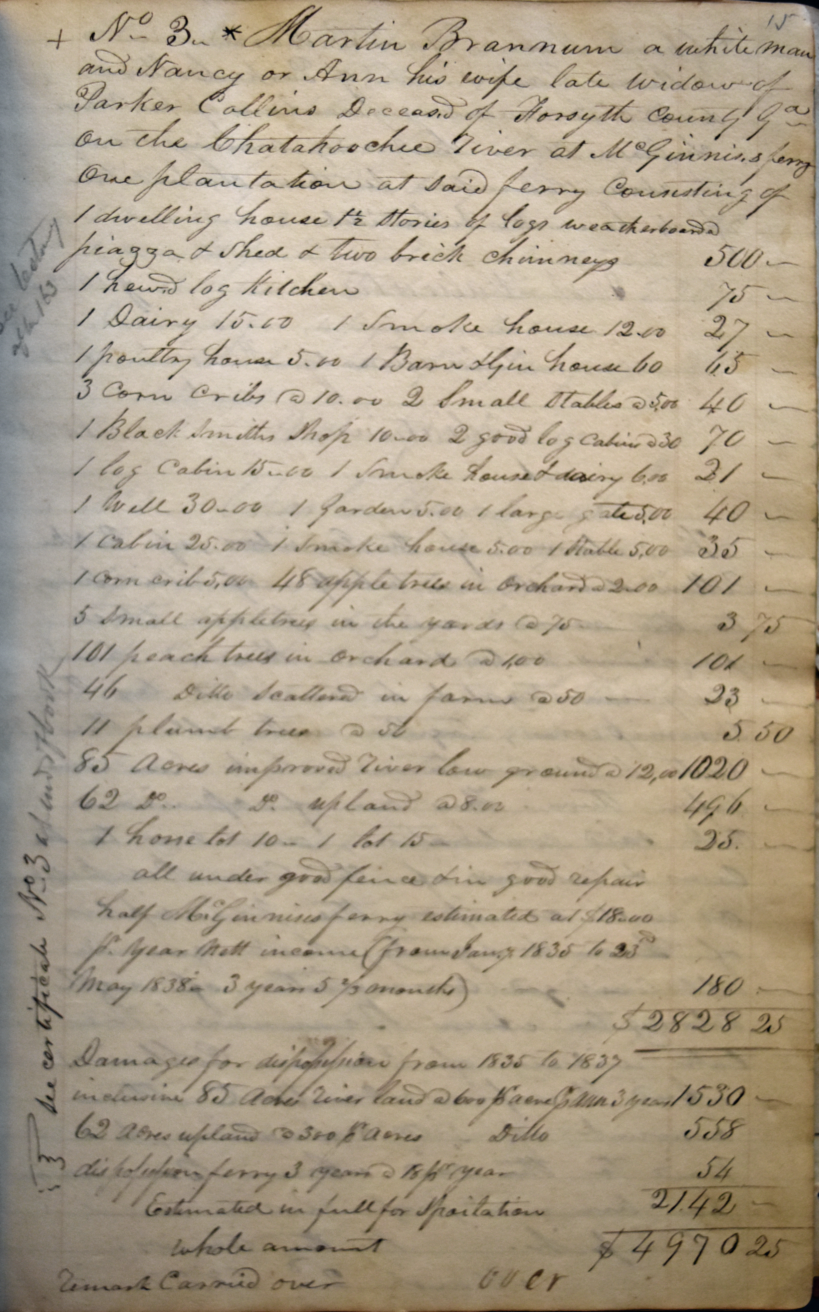 15
+ No 3. * Martin Brannum a white man
and Nancy or Ann his wife late widow of
Parker Collins Deceasd of Forsyth County Ga
on the Chatahoochee river at McGinnis,s ferry
One plantation at said ferry Consisting of
1 dwelling house 1½ stories of logs weatherboard
piazza & shed & two brick chimneys 500 —
1 hewd log Kitchen 75 —
1 Dairy 15.00 1 Smoke house 12.00 27 —
1 poultry house 5.00 1 Barn & Gin house 60 65
3 Corn cribs @ 10.00 2 Small stables @ 5,00 40 —
1 Black Smiths Shop 10.00 2 good log cabins @ 30 70 —
1 log Cabin 15.00 1 Smoke house & dairy 6.00 21 —
1 Well 30.00 1 Garden 5.00 1 large gate 5,00 40 —
1 Cabin 25.00 1 Smoke house 5.00 1 Stable 5,00 35 —
1 corn crib 5,00 48 apple trees in orchard @ 2.00 101 —
5 Small appletrees in the yards @ 75 3 75
101 peach trees in orchard @ 1,00 101 —
46 Ditto Scattered in farm @ 50 — 23 —
11 plumb trees @ 50 5.50
85 Acres improved river low ground @ 12,00 1020 —
62 Do. Do. upland @ 8.00 496 —
1 horse lot 10 — 1 lot 15 — 25. —
all under good fence & in good repair
half McGinnises ferry estimated at $18.00
pr. year nett income (from Jany 1835 to 23d
May 1838 3 years 5 months) 180 —
$ 2828 25
Damages for dispossession from 1835 to 1837
inclusive 85 Acres river land @ 600 pr acre pr Ann 3 years 1530 —
62 Acres upland @ 300 pr Acres Ditto 558
dispossession ferry 3 years @ 18 pr year 54
Estimated in full for Spoilation 2142 —
whole amount $ 4970 25
Remark Carried over over
See testimy
163
3 See certificate No 3 at end of book